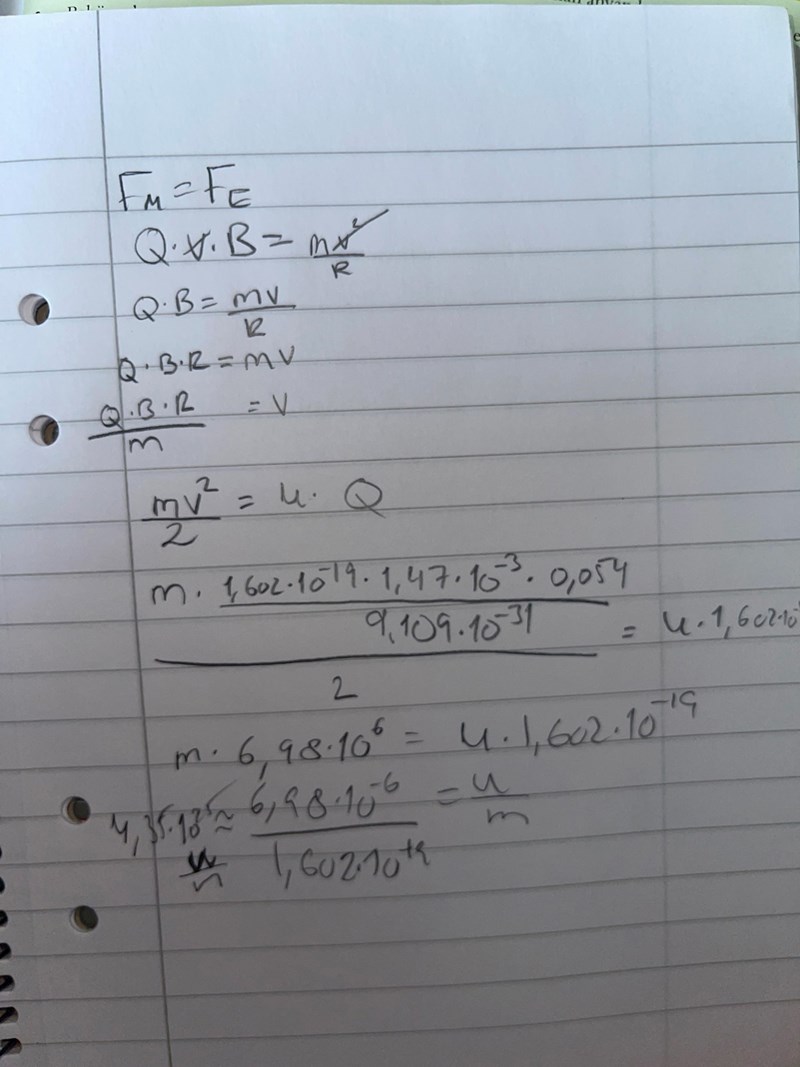 F_M = F_E
Q · v · B = mv²/R
Q · B = mv/R
Q · B · R = mv
Q · B · R/m = v
mv²/2 = u · Q
m · (1,602·10⁻¹⁹ · 1,47·10⁻³ · 0,054/9,109·10⁻³¹)/2 = u · 1,602·10
m · 6,98·10⁶ = u · 1,602·10⁻¹⁹
≈ 6,98·10⁻⁶/1,602·10⁺¹⁹ = u/m